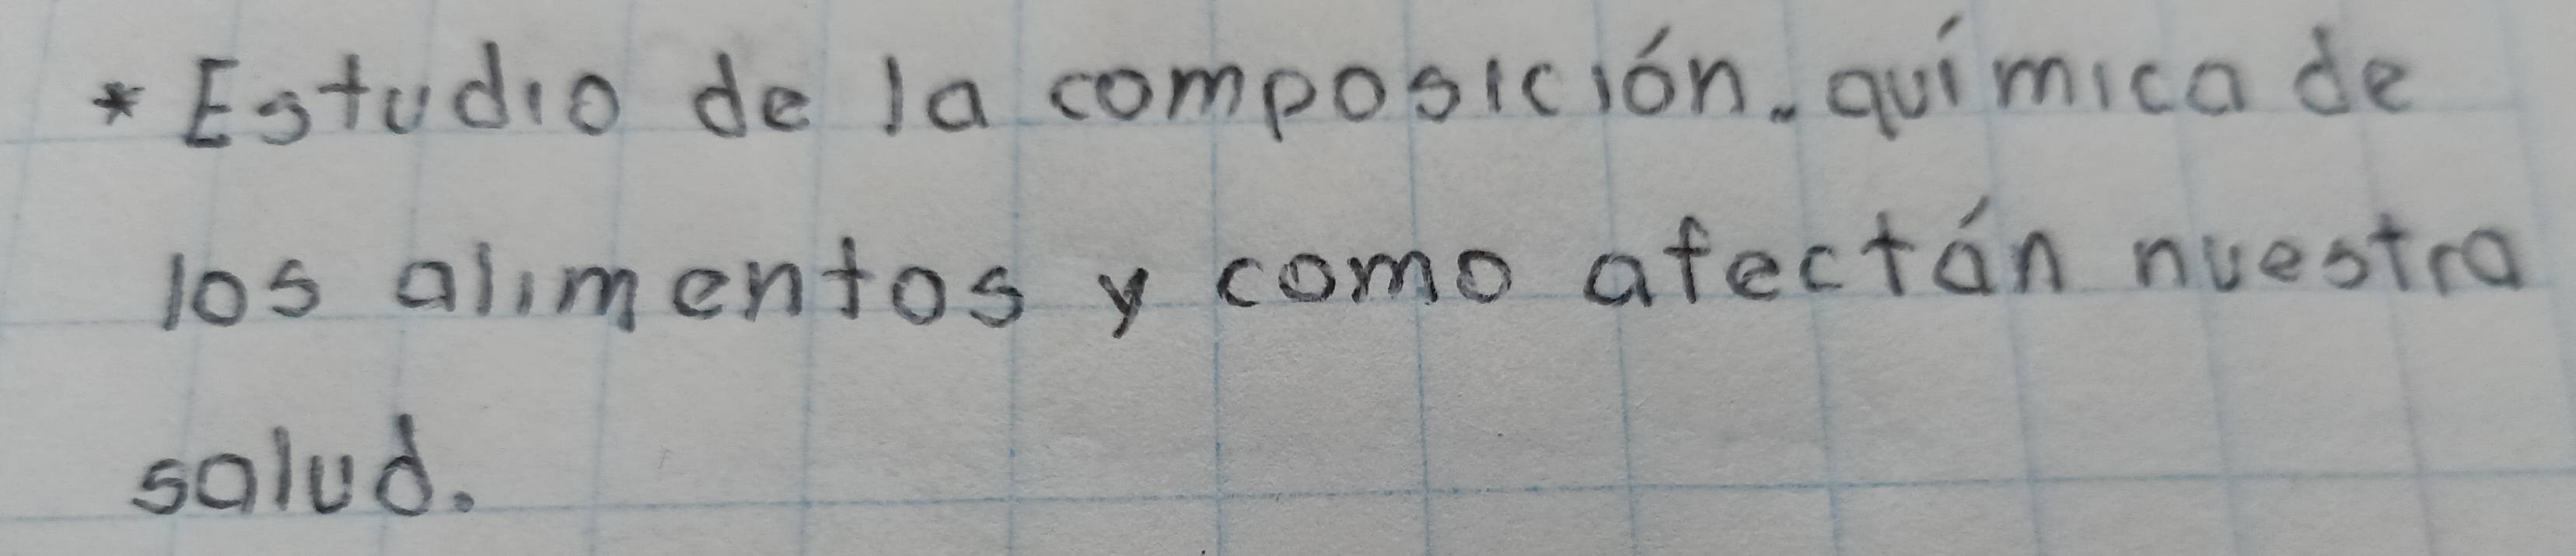 * Estudio de la composición. química de
los alimentos y como afectán nuestra
salud.